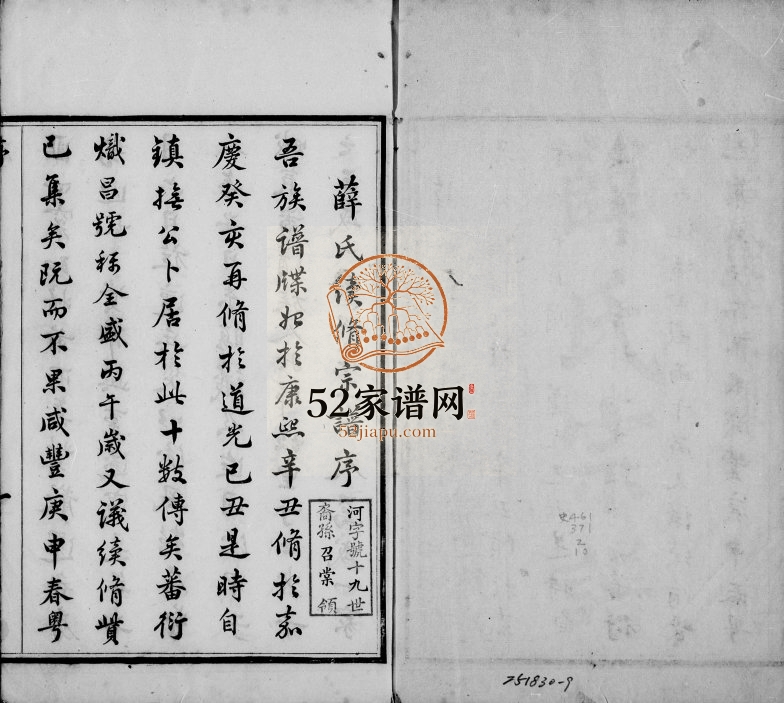 薛氏續脩宗譜序
河字號十九世
裔孫召棠領
吾族譜牒始於康熙辛丑脩於嘉
慶癸亥再脩於道光己丑是時自
鎮撫公卜居於此十數傳矣蕃衍
熾昌號稱全盛丙午歲又議續脩貲
已集矣既而不果咸豐庚申春粵
52家谱网
52jiapu.com
461
371
2
10
251830-9